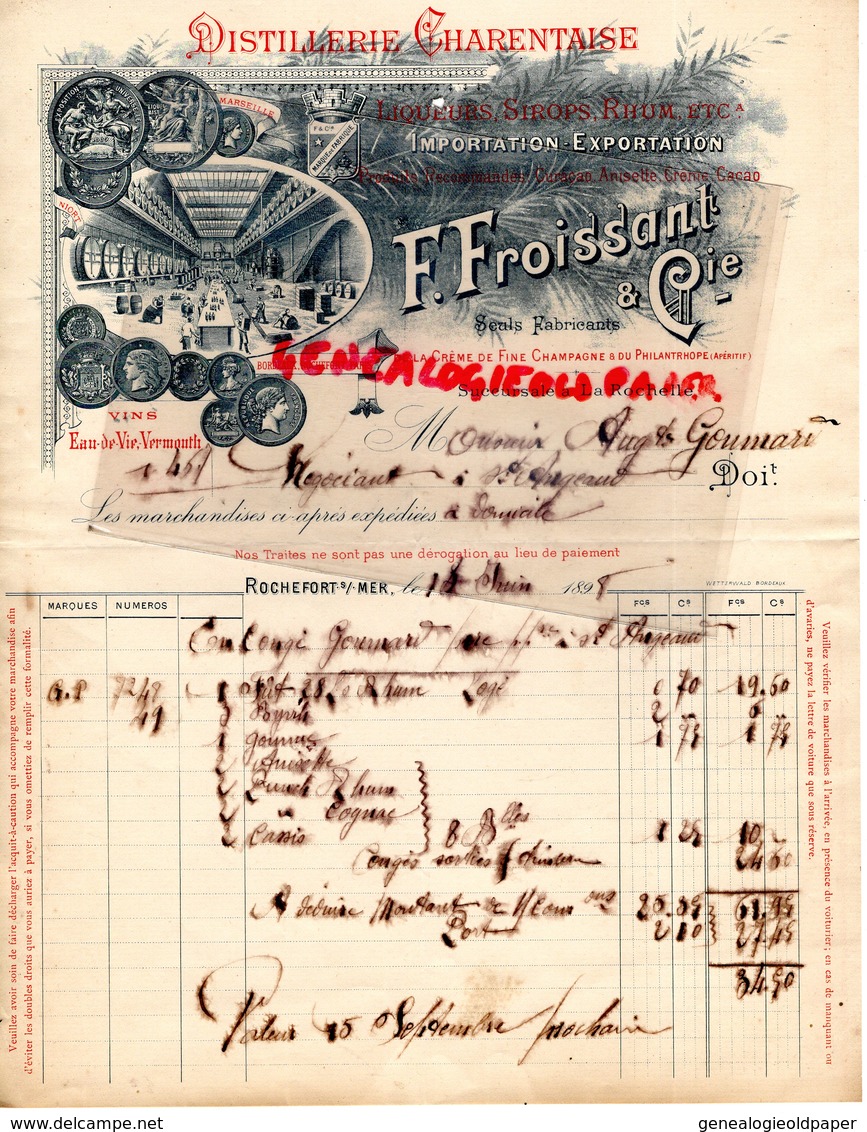 DISTILLERIE CHARENTAISE
LIQUEURS, SIROPS, RHUM, ETC.
IMPORTATION-EXPORTATION
Produits Recommandés, Curaçao, Anisette, Crème, Cacao
EXPOSITION UNIVERSELLE
MARSEILLE
F & Cie
MARQUE DE FABRIQUE
NIORT
F. Froissant
& Cie
Seuls Fabricants
DE LA CRÈME DE FINE CHAMPAGNE & DU PHILANTRHOPE (APÉRITIF)
BORDEAUX, ROCHEFORT
GENEALOGIEOLDPAPER
Succursale à La Rochelle
VINS
Eau-de-Vie, Vermouth
Monsieur Aug. Goumard
Négociant à St Angeaud Doit
Les marchandises ci-après expédiées à domicile
Nos Traites ne sont pas une dérogation au lieu de paiement
ROCHEFORT-s/-MER, le Juin 1898
WETTERWALD BORDEAUX
MARQUES NUMEROS Fcs Cs Fcs Cs
Congé Goumard à St Angeaud
7248 1 Fût 28 Rhum Logé 70 19.60
49
1 75 1 75
2 Anisette
2 Punch Rhum
Cognac
2 Cassis 8 Blles 1 25 10
Congés sorties 24 60
A déduire Montant de
Port 2 10 27 45
34.50
Valeur 15 Septembre prochain
Veuillez avoir soin de faire décharger l'acquit-à-caution qui accompagne votre marchandise afin
d'éviter les doubles droits que vous auriez à payer, si vous omettiez de remplir cette formalité.
Veuillez vérifier les marchandises à l'arrivée, en présence du voiturier; en cas de manquant ou
d'avaries, ne payez la lettre de voiture que sous réserve.
www.delcampe.net
genealogieoldpaper